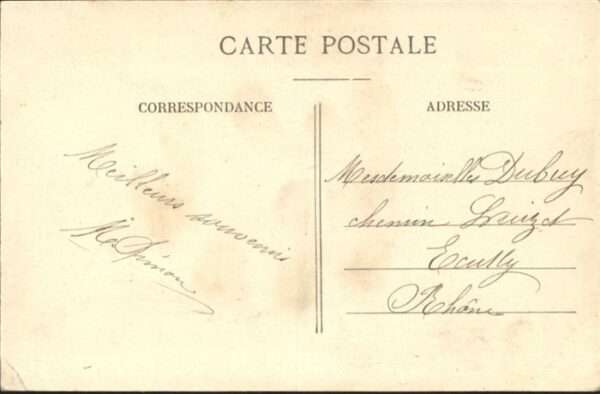 CARTE POSTALE
CORRESPONDANCE
ADRESSE
Meilleurs souvenirs
M. Simon
Mesdemoiselles Dubuy
chemin
Ecully
Rhône